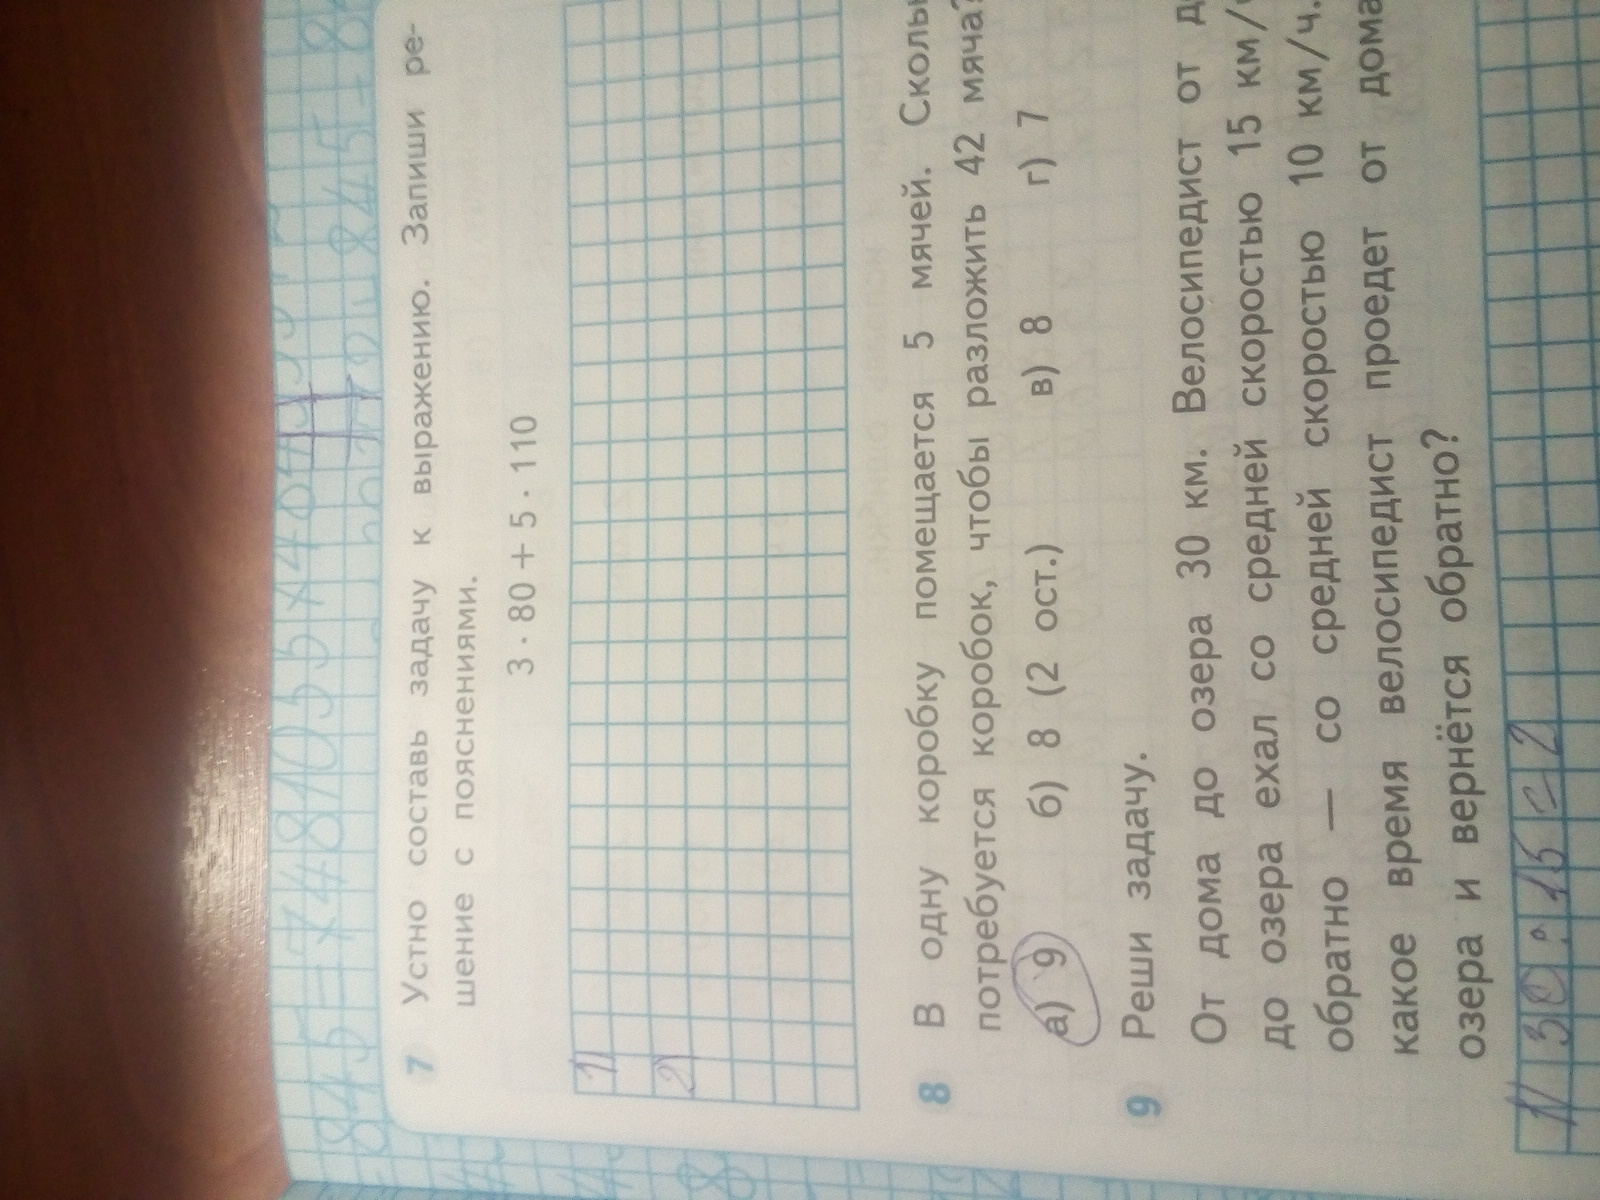 7 Устно составь задачу к выражению. Запиши ре-
шение с пояснениями.
3 · 80 + 5 · 110
1)
2)
8 В одну коробку помещается 5 мячей.
потребуется коробок, чтобы разложить 42 мяча?
а) 9 б) 8 (2 ост.) в) 8 г) 7
9 Реши задачу.
От дома до озера 30 км. Велосипедист от
до озера ехал со средней скоростью 15 км/ч
обратно — со средней скоростью 10 км/ч.
какое время велосипедист проедет от дома
озера и вернётся обратно?
1) 30 : 15 = 2